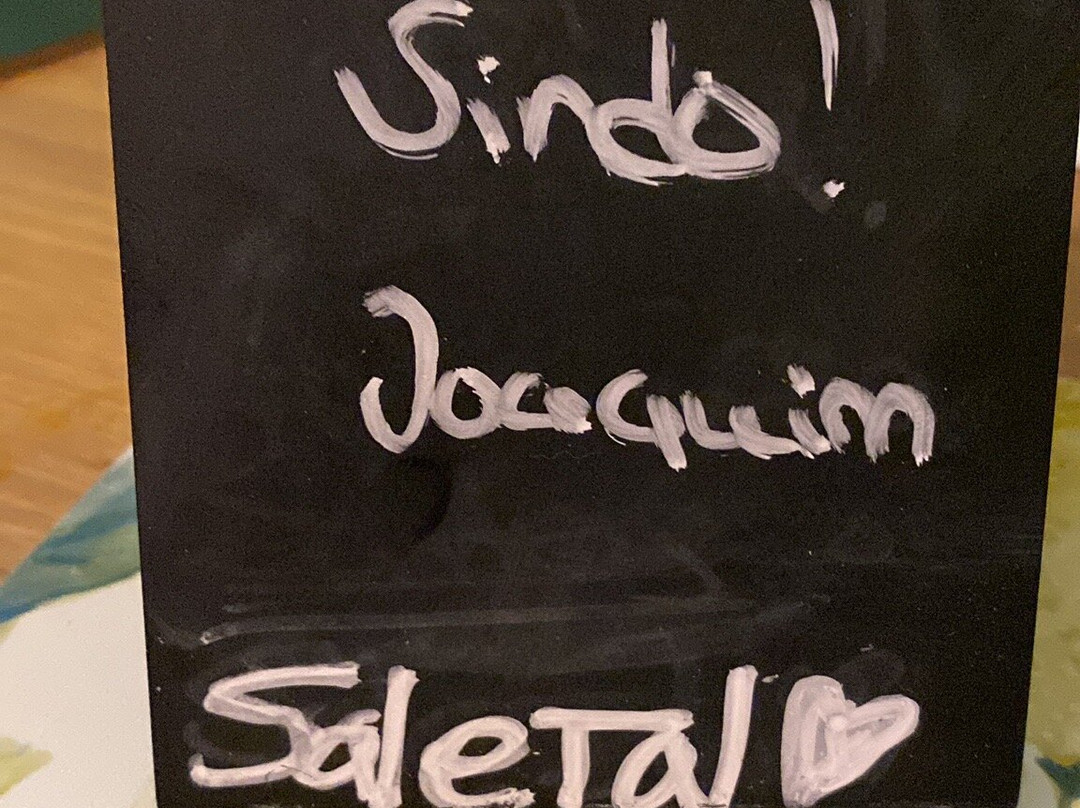 Sindo!
Joaquim
Saletal ♥